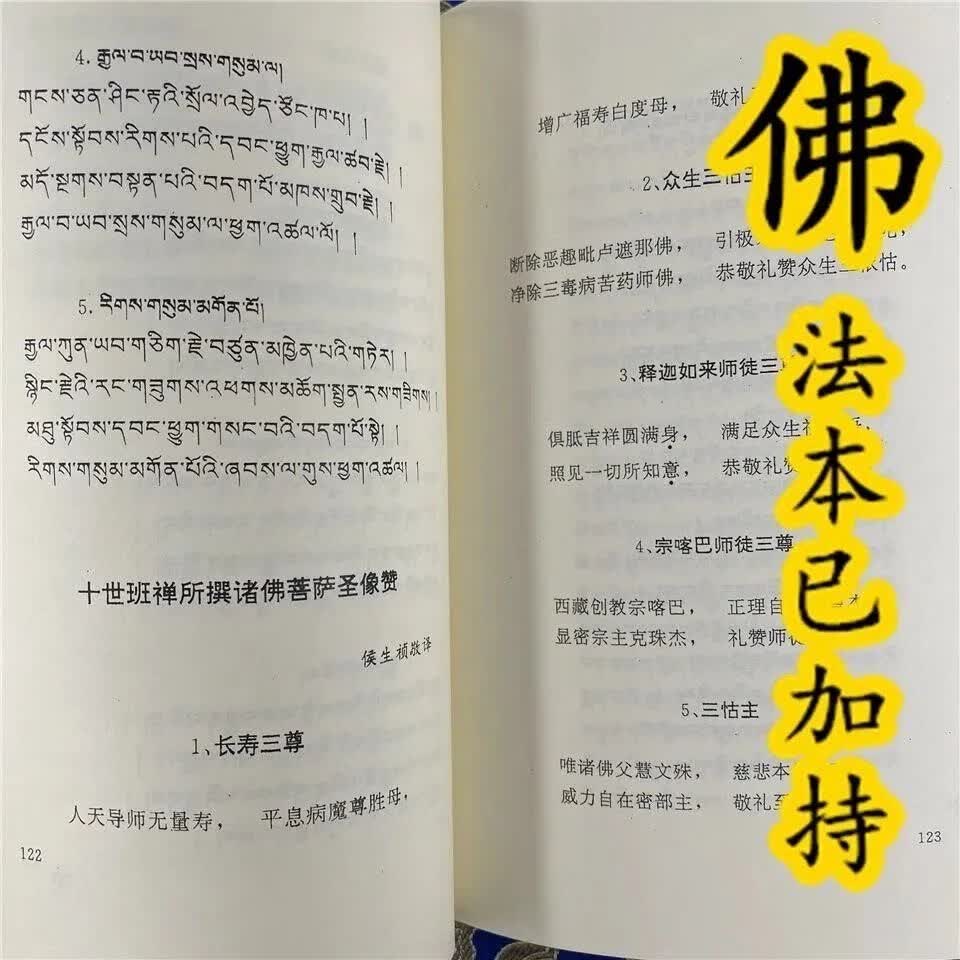 4. རྒྱལ་བ་ཡབ་སྲས་གསུམ་ལ།
གངས་ཅན་ཤིང་རྟའི་སྲོལ་འབྱེད་ཙོང་ཁ་པ། །
དངོས་སྟོབས་རིགས་པའི་དབང་ཕྱུག་རྒྱལ་ཚབ་རྗེ། །
མདོ་སྔགས་བསྟན་པའི་བདག་པོ་མཁས་གྲུབ་རྗེ། །
རྒྱལ་བ་ཡབ་སྲས་གསུམ་ལ་ཕྱག་འཚལ་ལོ། །
5. རིགས་གསུམ་མགོན་པོ།
རྒྱལ་ཀུན་ཡབ་གཅིག་རྗེ་བཙུན་མཁྱེན་པའི་གཏེར། །
སྙིང་རྗེའི་རང་གཟུགས་འཕགས་མཆོག་སྤྱན་རས་གཟིགས། །
མཐུ་སྟོབས་དབང་ཕྱུག་གསང་བའི་བདག་པོ་སྟེ། །
རིགས་གསུམ་མགོན་པོའི་ཞབས་ལ་གུས་ཕྱག་འཚལ། །
十世班禅所撰诸佛菩萨圣像赞
侯生桢敬译
1、长寿三尊
人天导师无量寿， 平息病魔尊胜母，
122
增广福寿白度母， 敬礼
2、众生三怙
断除恶趣毗卢遮那佛， 引极
净除三毒病苦药师佛， 恭敬礼赞众生 怙。
3、释迦如来师徒三
俱胝吉祥圆满身， 满足众生
照见一切所知意， 恭敬礼赞
4、宗喀巴师徒三尊
西藏创教宗喀巴， 正理自
显密宗主克珠杰， 礼赞师
5、三怙主
唯诸佛父慧文殊， 慈悲本
威力自在密部主， 敬礼至
123
佛法本已加持